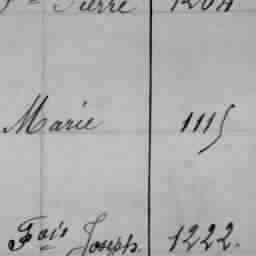 Pierre 1204
Marie 1115
Fois Joseph. 1222.